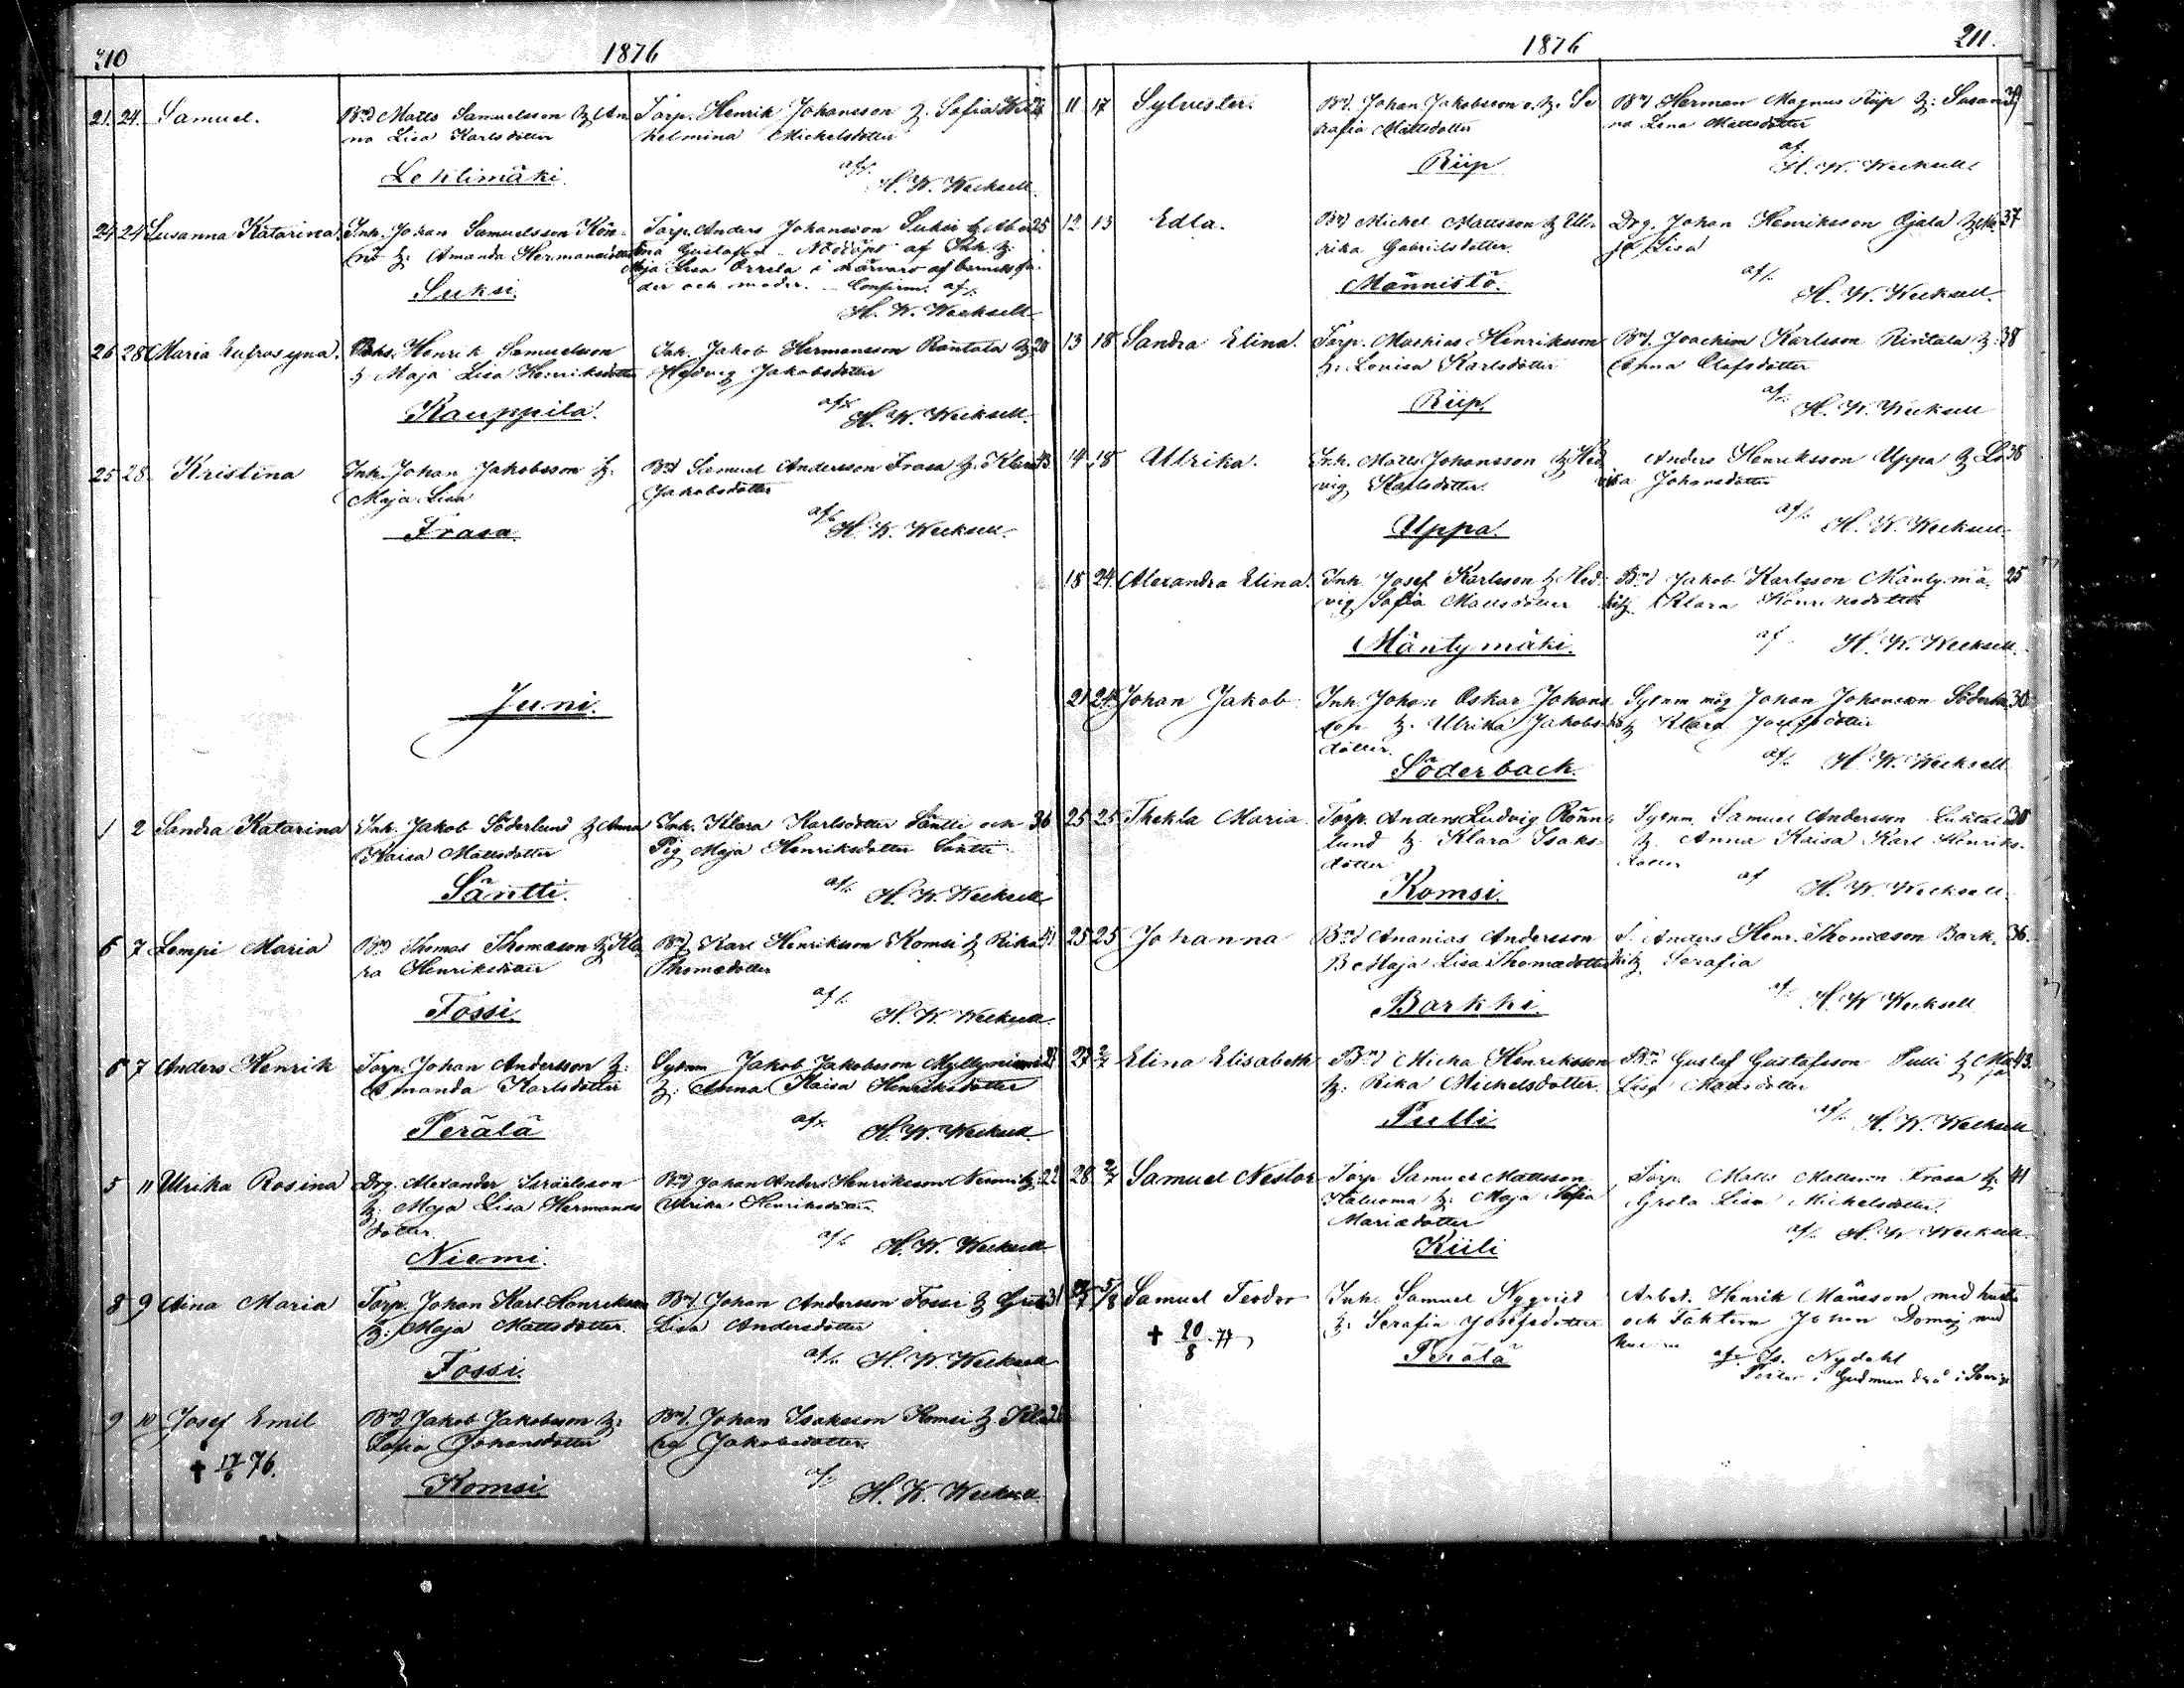 210
1876
21. 24. Samuel.
Bnd Matts Samuelsson & An
na Lisa Karlsdotter
Lehtimäki.
Torp. Henrik Johansson & Sofia
helmina Mickelsdotter
af H. W. Wecksell
24 24 Susanna Katarina.
Inh. Johan Samuelsson
& Amanda Hermansdotter
Suksi.
Torp. Anders Johansson Suksi & 25
Gustafsd. Nöddöpt af Inh. &
Maja Lisa Orrela i närvaro af barnets fa-
der och moder. Confirm. af
H. W. Wecksell
26 28 Maria Eufrosyna.
Henrik Samuelsson
& Maja Lisa Henriksdotter
Kauppila.
Inh. Jakob Hermansson Rantala &
Hedvig Jakobsdotter
af H. W. Wecksell.
25 28 Kristina
Inh. Johan Jakobsson &
Maja Lisa
Frasa.
Bnd Samuel Andersson Frasa & Klara
Jakobsdotter
af H. W. Wecksell.
Juni.
1 2 Sandra Katarina
Inh. Jakob Söderlund & Anna
Kaisa Mattsdotter
Säntti.
Inh. Klara Karlsdotter Säntti och 36
Pig. Maja Henriksdotter Säntti
af H. W. Wecksell
6 7 Lempi Maria
Bnd Thomas Thomasson & Kla
ra Henriksdotter
Fossi.
Bnd Karl Henriksson Komsi & Rika
Thomasdotter
af H. W. Wecksell
6 7 Anders Henrik
Torp. Johan Andersson &
Amanda Karlsdotter
Perälä
Sytnm Jakob Jakobsson Myllyniemi
& Anna Kaisa Henriksdotter
af H. W. Wecksell
5 11 Ulrika Rosina
Drg. Alexander Israelsson
& Maja Lisa Hermans
dotter
Niemi.
Bnd Johan Anders Henriksson Niemi & 22
Ulrika Henriksdotter
af H. W. Wecksell
8 9 Aina Maria
Torp. Johan Karl Henriksson
& Maja Mattsdotter.
Fossi.
Bnd Johan Andersson Fossi & Greta 31
Lisa Andersdotter
af H. W. Wecksell
9 10 Josef Emil
† 17/6 76.
Bnd. Jakob Jakobsson &
Sofia Johansdotter
Komsi
Bnd. Johan Isaksson Komsi & Kla
ra Jakobsdotter.
af H. W. Wecksell
1876
211.
11 17 Sylvester.
Bnd. Johan Jakobsson o. & Se
rafia Mattsdotter
Riip
Bnd Herman Magnus Riip & Susan
na Lena Mattsdotter
af
H. W. Wecksell
12 13 Edla.
Bnd Michel Mattsson & Ulr
rika Gabrielsdotter.
Männistö.
Drg. Johan Henriksson Ojala & Ma 37
ja Lisa
af H. W. Wecksell.
13 18 Sandra Elina.
Torp. Mathias Henriksson
& Lovisa Karlsdotter
Riip.
Bnd. Joachim Karlsson Rintala & 38
Anna Olofsdotter
af H. W. Wecksell
14 18 Ulrika.
Inh. Matts Johansson & Hed
vig Karlsdotter.
Uppa.
Anders Henriksson Uppa & Lo 38
visa Johansdotter
af H. W. Wecksell
18 24 Alexandra Elina.
Inh. Josef Karlsson & Hed
vig Sofia Mattsdotter
Mäntymäki.
Bnd Jakob Karlsson Mäntymä 25
ki & Klara Henriksdotter
af H. W. Wecksell
21 24 Johan Jakob
Inh. Johan Oskar Johans
son & Ulrika Jakobs
dotter.
Söderback.
Sytnm måg Johan Johansson Söderba 30
& Klara Josefsdotter
af H. W. Wecksell
25 25 Thekla Maria
Torp. Anders Ludvig Rönn
lund & Klara Isaks-
dotter
Komsi.
Sytnm. Samuel Andersson
& Anna Kaisa Karl Henriks-
dotter
af H. W. Wecksell.
25 25 Johanna
Bnd Ananias Andersson
& Maja Lisa Thomasdotter
Barkki.
Anders Henr. Thomasson Bark 36.
ki & Serafia
af H. W. Wecksell
27 2/7 Elina Elisabeth
Bnd Micha Henriksson
& Rika Michelsdotter.
Pulli
Bnd Gustaf Gustafsson Pulli & Ma 43.
ja Lisa Mattsdotter
af H. W. Wecksell
28 2/7 Samuel Nestor
Torp Samuel Mattsson
& Maja Sofia
Mariasdotter
Kiili
Torp. Matts Mattsson Frasa & 41
Greta Lisa Michelsdotter.
af H. W. Wecksell.
5/8 Samuel Teodor
† 20/8 77
Inh. Samuel Nyqvist
& Serafia Josefsdotter
Perälä
Arbet. Henrik Månsson med hustru
och Faktorn Johan Domeij med
hustru
af Is. Nydahl
Pastor i Gudmundrå i Sverige